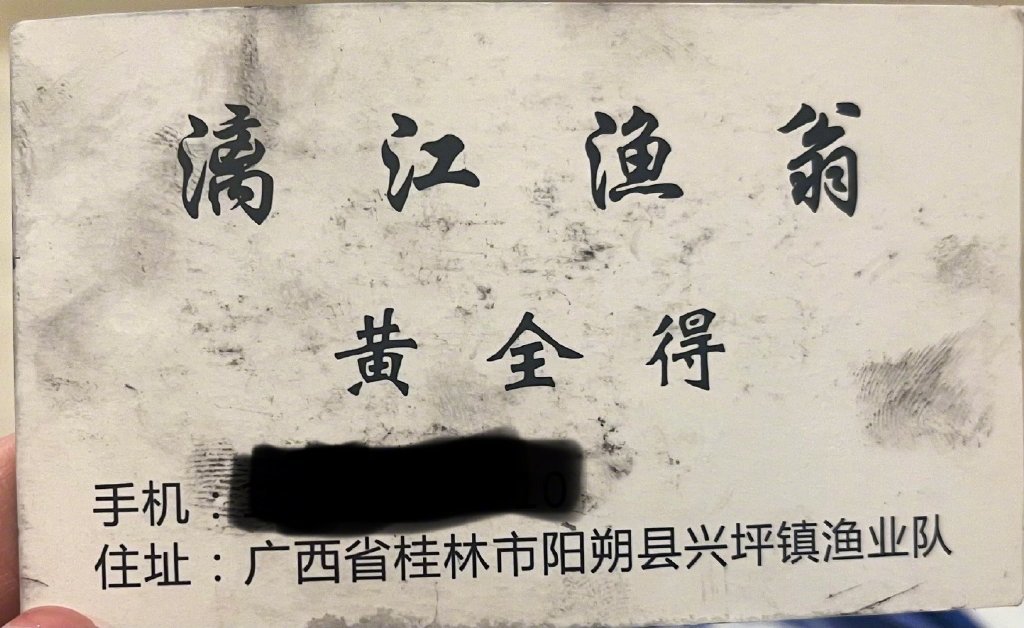 漓江渔翁
黄全得
手机：
住址：广西省桂林市阳朔县兴坪镇渔业队